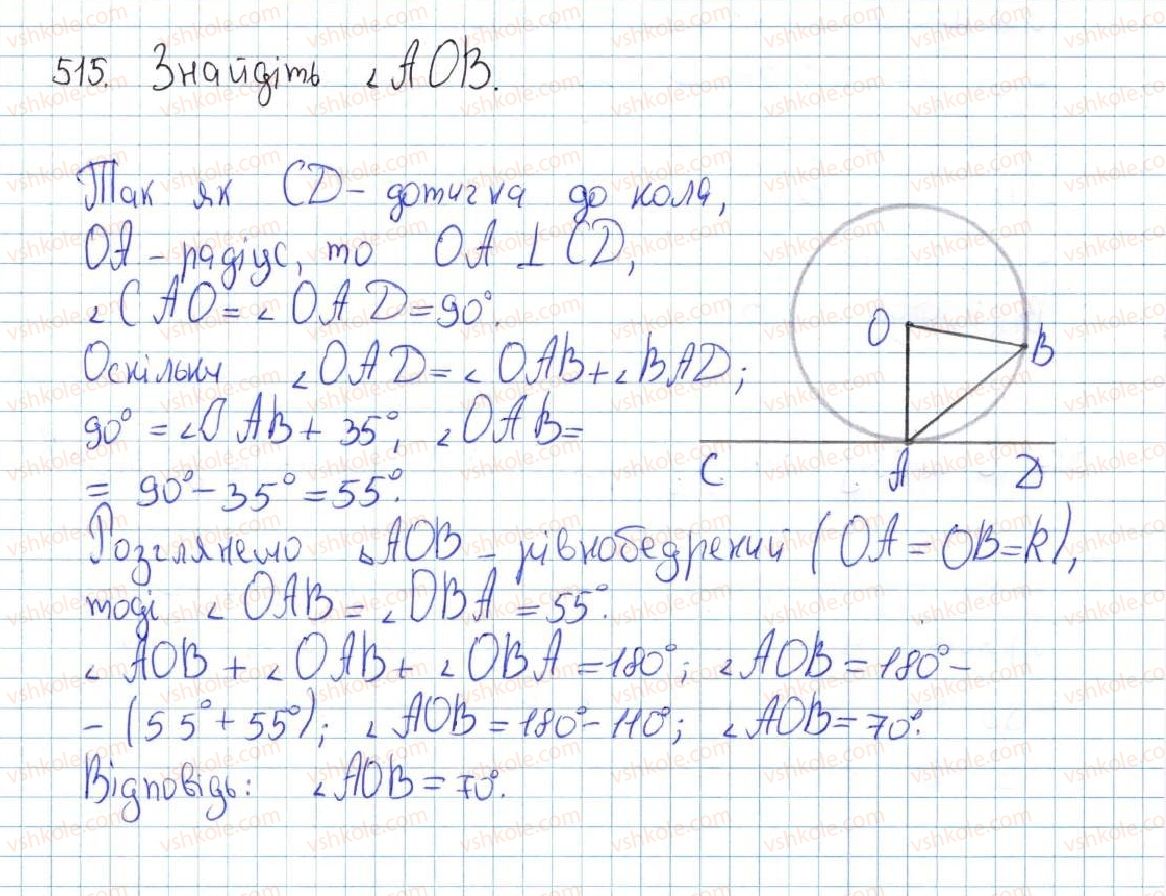 515. Знайдіть ∠AOB.
Так як CD - дотична до кола,
OA - радіус, то OA ⊥ CD,
∠CAO = ∠OAD = 90°.
Оскільки ∠OAD = ∠OAB + ∠BAD;
90° = ∠OAB + 35°, ∠OAB =
= 90° - 35° = 55°.
O
B
C
A
D
Розглянемо ΔAOB - рівнобедрений (OA = OB = R),
тоді ∠OAB = ∠OBA = 55°.
∠AOB + ∠OAB + ∠OBA = 180°; ∠AOB = 180° -
- (55° + 55°); ∠AOB = 180° - 110°; ∠AOB = 70°.
Відповідь: ∠AOB = 70°.